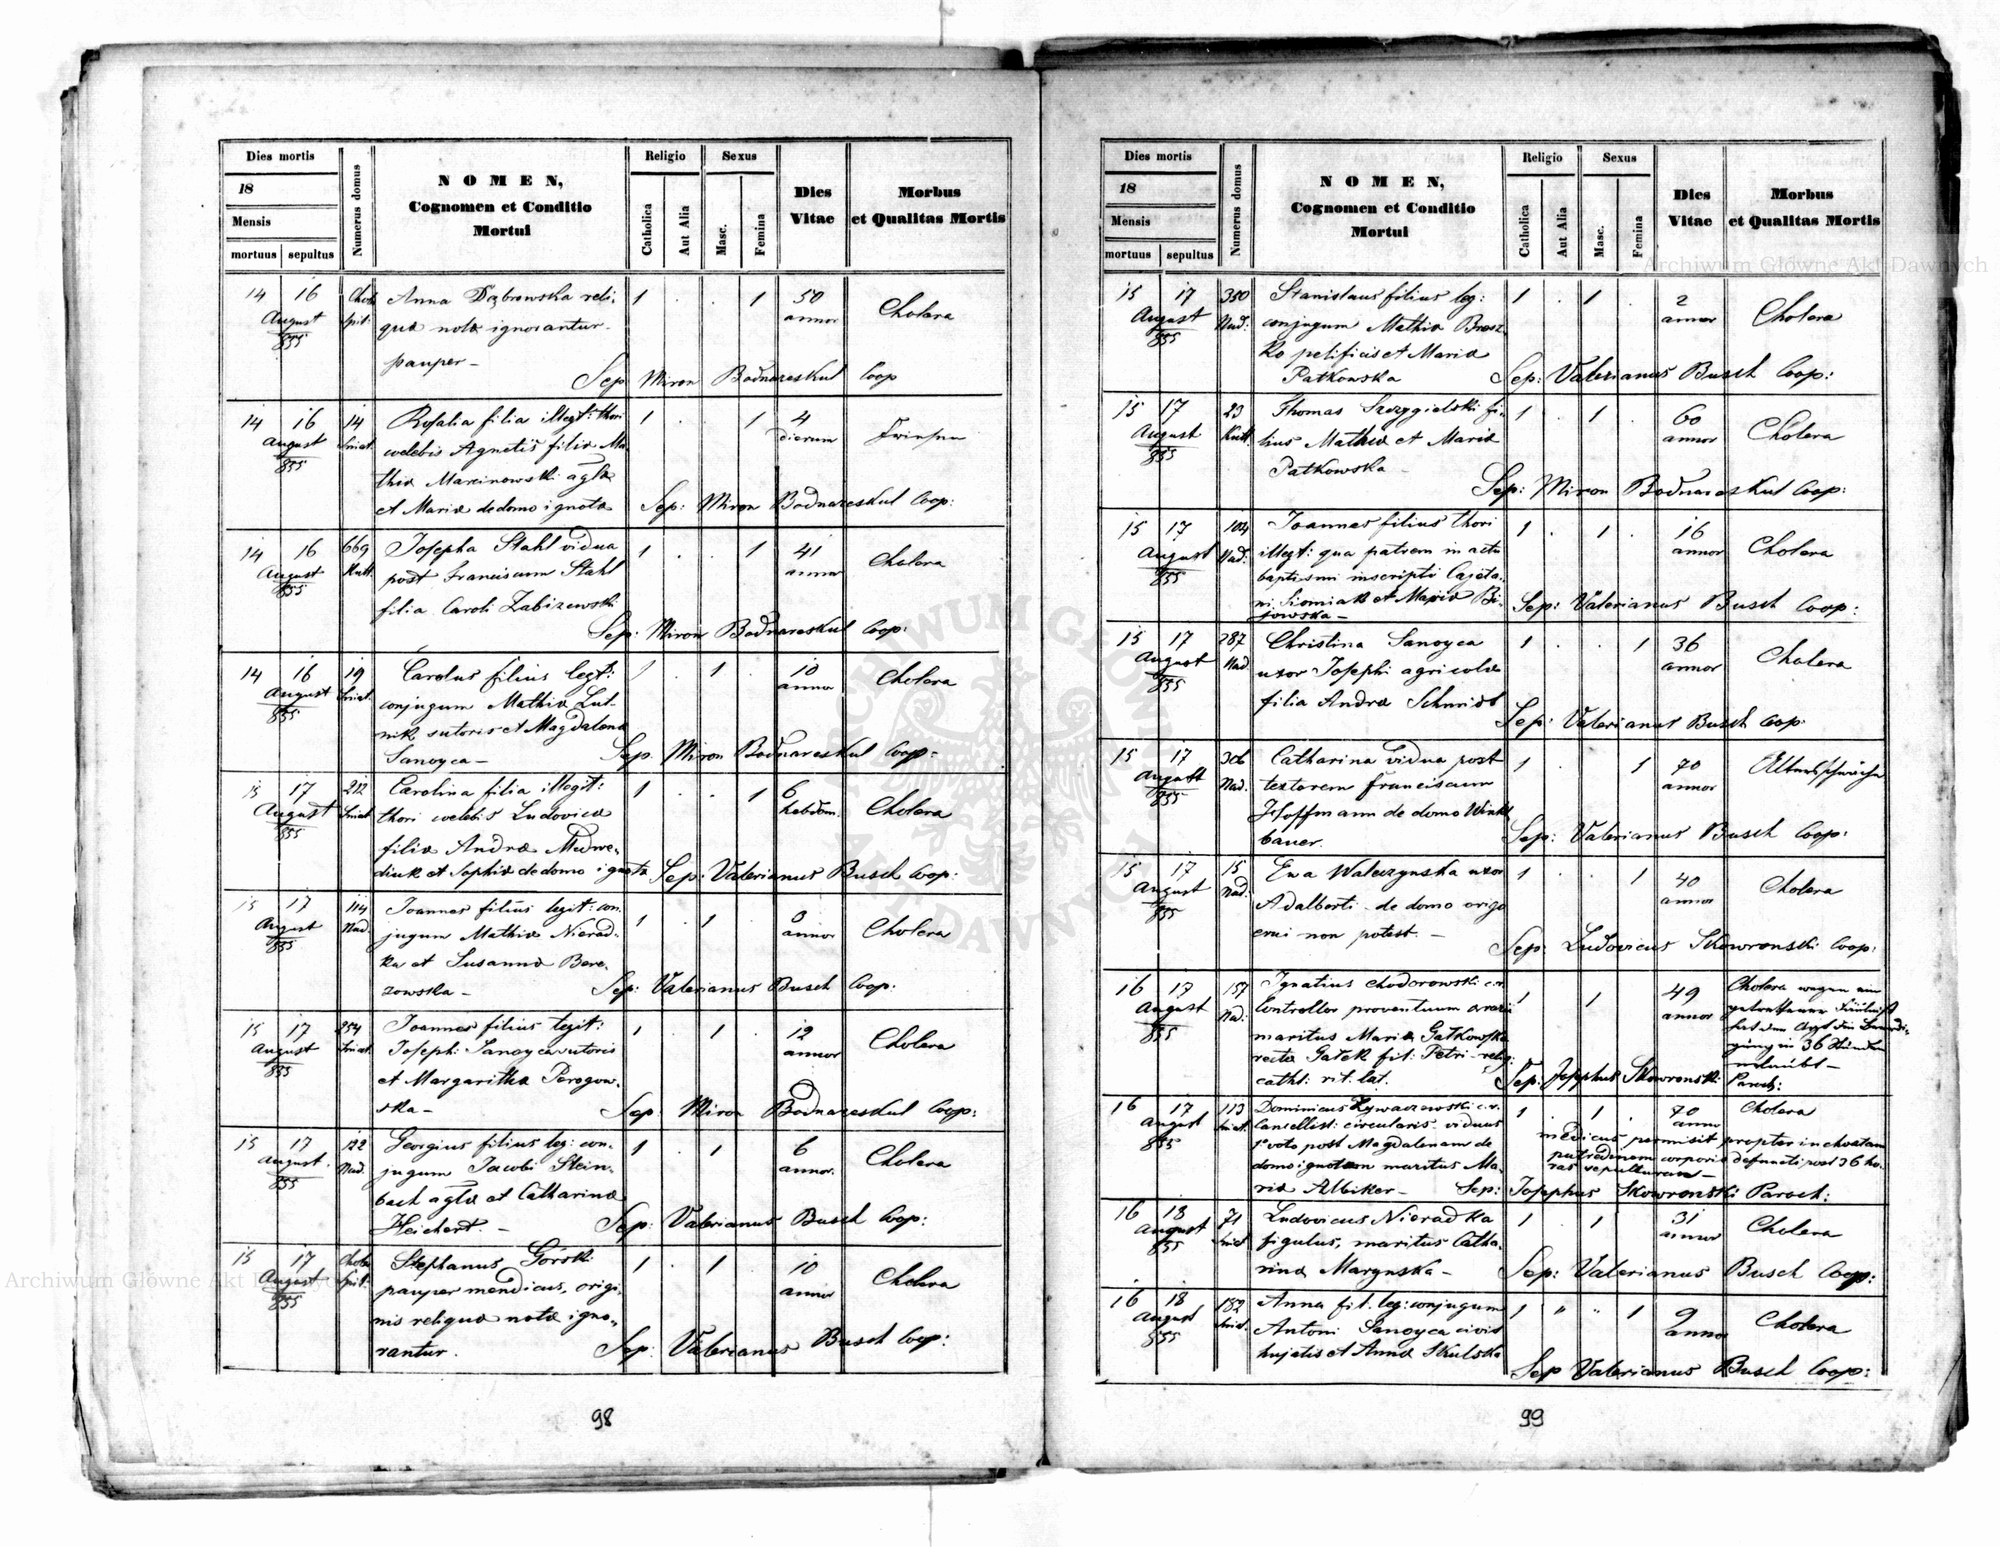 Dies mortis
18
Mensis
mortuus sepultus
Numerus domus
NOMEN,
Cognomen et Conditio
Mortui
Religio
Catholica
Aut Alia
Sexus
Masc.
Femina
Dies
Vitae
Morbus
et Qualitas Mortis
14 16 Anna Dąbrowska reli- 1 . . 1 50 Cholera
August Spit: quæ notæ ignorantur annor
855 pauper –
Sep Miron Bodnareskul Coop
14 16 14 Rosalia filia illegt: thori 1 . . 1 4
August Sniat. coelebis Agnetis filiæ Ma- dierum
855 thiæ Marcinowski aglæ
et Mariæ de domo ignotæ Sep: Miron Bodnareskul Coop:
14 16 669 Josepha Stahl vidua 1 . . 1 41 Cholera
August Kutt. post Franciscum Stahl annor
855 filia Caroli Zabizewski
Sep: Miron Bodnareskul Coop:
14 16 19 Carolus filius legt: 1 . 1 . 10 Cholera
August Sniat. conjugum Mathiæ Lut- annor
855 nik sutoris et Magdalena
Sanoyca – Sep. Miron Bodnareskul Coop:
15 17 212 Carolina filia illegit: 1 . . 1 6 Cholera
August Sniat thori coelebis Ludovica hebdom.
855 filiæ Andræ Medwe-
diuk et Sophiæ de domo ignota Sep: Valerianus Busch Coop:
15 17 114 Joannes filius legit: con- 1 . 1 . 3 Cholera
August Nad. jugum Mathiæ Nierad- annor
855 ka et Susanna Bere-
zowska – Sep: Valerianus Busch Coop:
15 17 254 Joannes filius legit: 1 . 1 . 12 Cholera
August Sniat. Josephi Sanoyca sutoris annor
855 et Margaritha Perogow-
ska – Sep: Miron Bodnareskul Coop:
15 17 122 Georgius filius leg: con- 1 . 1 6 Cholera
August. Nad. jugum Jacobi Stein- annor.
855 bach aglæ et Catharina
Heichert. – Sep: Valerianus Busch Coop:
15 17 Stephanus Górski 1 . 1 . 10 Cholera
August Spit. pauper mendicus, origi- annor
855 nis reliquæ notæ igno-
rantur. Sep: Valerianus Busch Coop:
98
Dies mortis
18
Mensis
mortuus sepultus
Numerus domus
NOMEN,
Cognomen et Conditio
Mortui
Religio
Catholica
Aut Alia
Sexus
Masc.
Femina
Dies
Vitae
Morbus
et Qualitas Mortis
15 17 350 Stanislaus filius leg: 1 . 1 . 2 Cholera
August Nad. conjugum Mathiæ Brosz- annor
855 ko pelificis et Mariæ
Patkowska Sep: Valerianus Busch Coop:
15 17 23 Thomas Szczygielski fi- 1 . 1 . 60 Cholera
August Kutt. lius Mathiæ et Mariæ annor
855 Patkowska –
Sep: Miron Bodnareskul Coop:
15 17 104 Joannes filius thori 1 . 1 . 16 Cholera
August Nad: illegt: qua patrem in actu annor
855 baptismi inscripti Cajeta-
ni Siomiak et Mariæ Bi-
jowska – Sep: Valerianus Busch Coop:
15 17 287 Christina Sanoyca 1 . . 1 36 Cholera
August Nad uxor Josephi agricolæ annor
855 filia Andræ Schmidt
Sep: Valerianus Busch Coop.
15 17 306 Catharina vidua post 1 . . 1 70 Altersschwäche
August Nad. textorem Franciscum annor
855 Hoffmann de domo Winkl
bauer. Sep: Valerianus Busch Coop:
15 17 15 Eva Walczynska uxor 1 . . 1 40 Cholera
August Nad. Adalberti de domo origo annor
855 erui non potest. –
Sep: Ludovicus Skowronski Coop:
16 17 157 Ignatius Chodorowski c.r. 1 1 49 Cholera wegen ein
August Nad. Controllor proventuum annor getrettener Fäulniß
855 maritus Mariæ Gatkowska hat der Arzt die Beerdi-
recte Gatek fil: Petri relig: gung in 36 Stunden
cath: rit. lat. erlaubt –
Sep: Josephus Skowronski Paroch:
16 17 113 Dominicus Zywaczewski c.r. 1 . 1 . 70 Cholera
August Sniat. Cancellist: circularis viduus annor
855 1º voto post Magdalenam de medicus permisit propter inchoatam
domo ignotam maritus Ma- putredinem corporis defuncti post 36 ho-
ria Albiker – ras sepulturam –
Sep: Josephus Skowronski Paroch:
16 18 71 Ludovicus Nieradka 1 . 1 31 Cholera
August Sniat figulus, maritus Catha- annor
855 rina Marynska – Sep: Valerianus Busch Coop:
16 18 182 Anna fil. leg: conjugum 1 " " 1 9 Cholera
August Sniat. Antoni Sanoyca civis annor
855 hujatis et Annæ Skulska
Sep Valerianus Busch Coop:
99
Archiwum Główne Akt Dawnych
Archiwum Główne Akt Dawnych
ARCHIWUM GŁÓWNE AKT DAWNYCH